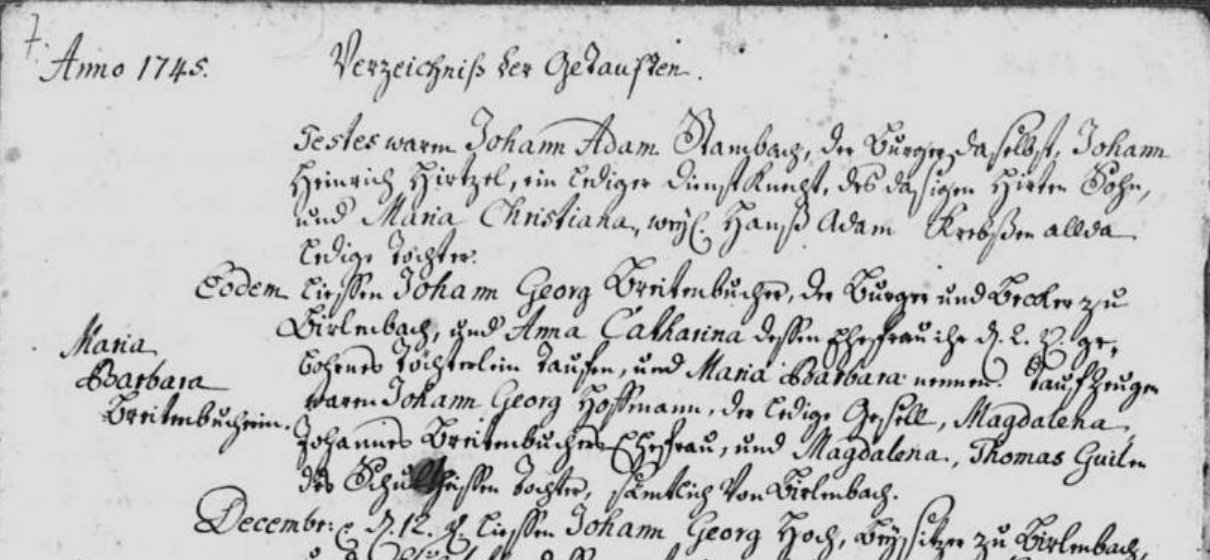 7.
Anno 1745. Verzeichniß der Getauften.
Testes waren Johann Adam Stambach, der Burger daselbst, Johann
Heinrich Hirtzel, ein lediger dienst Knecht, des dasigen Hirten Sohn,
und Maria Christiana, weyl. Hanß Adam Krebßen allda
ledige Tochter.
Eodem liessen Johann Georg Breitenbucher, der Burger und Becker zu
Birlenbach, und Anna Catharina dessen Ehefrau ihr d. 2. ge-
bohrnes Töchterlein taufen, und Maria Barbara nennen. Taufzeugen
Maria
Barbara
Breitenbucherin.
waren Johann Georg Hoffmann, der ledige Gesell, Magdalena,
Johannes Breitenbuchers Ehefrau, und Magdalena, Thomas
des Schultheissen Tochter, sämtlich von Birlenbach.
Decembr: d. 12. liessen Johann Georg Hoch, Beysitzer zu Birlenbach